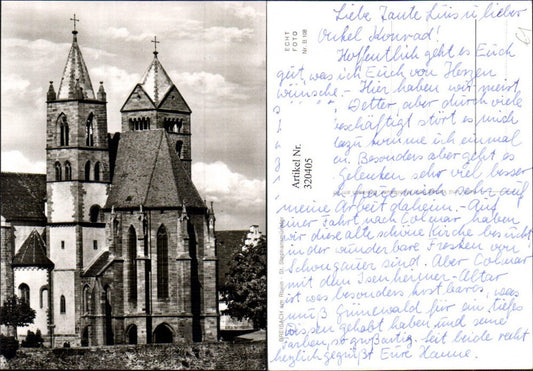 Liebe Tante Luis u. lieber
Onkel Konrad!
Hoffentlich geht es Euch
gut, was ich Euch von Herzen
wünsche. - Hier haben wir meist
Wetter aber durch viele
beschäftigt stört es mich
dazu komme ich einmal
Besonders aber geht es
Gelenken sehr viel besser
mich sehr auf
meine Arbeit daheim. - Auf
einer Fahrt nach Colmar haben
wir diese alte schöne Kirche besucht
in der wunderbare Fresken von
Schongauer sind. Aber Colmar
mit dem Isenheimer-Altar
ist was besonders kostbares, was
muß Grünewald für ein tiefes
Wissen gehabt haben und seine
Farben, so großartig. Seit beide recht
herzlich gegrüßt Eure Hanne.
ECHT
FOTO
Artikel Nr.
320405
BREISACH am Rhein